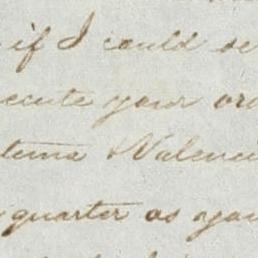 if I could se
ecute your ord
tems & Valenci
quarter as you